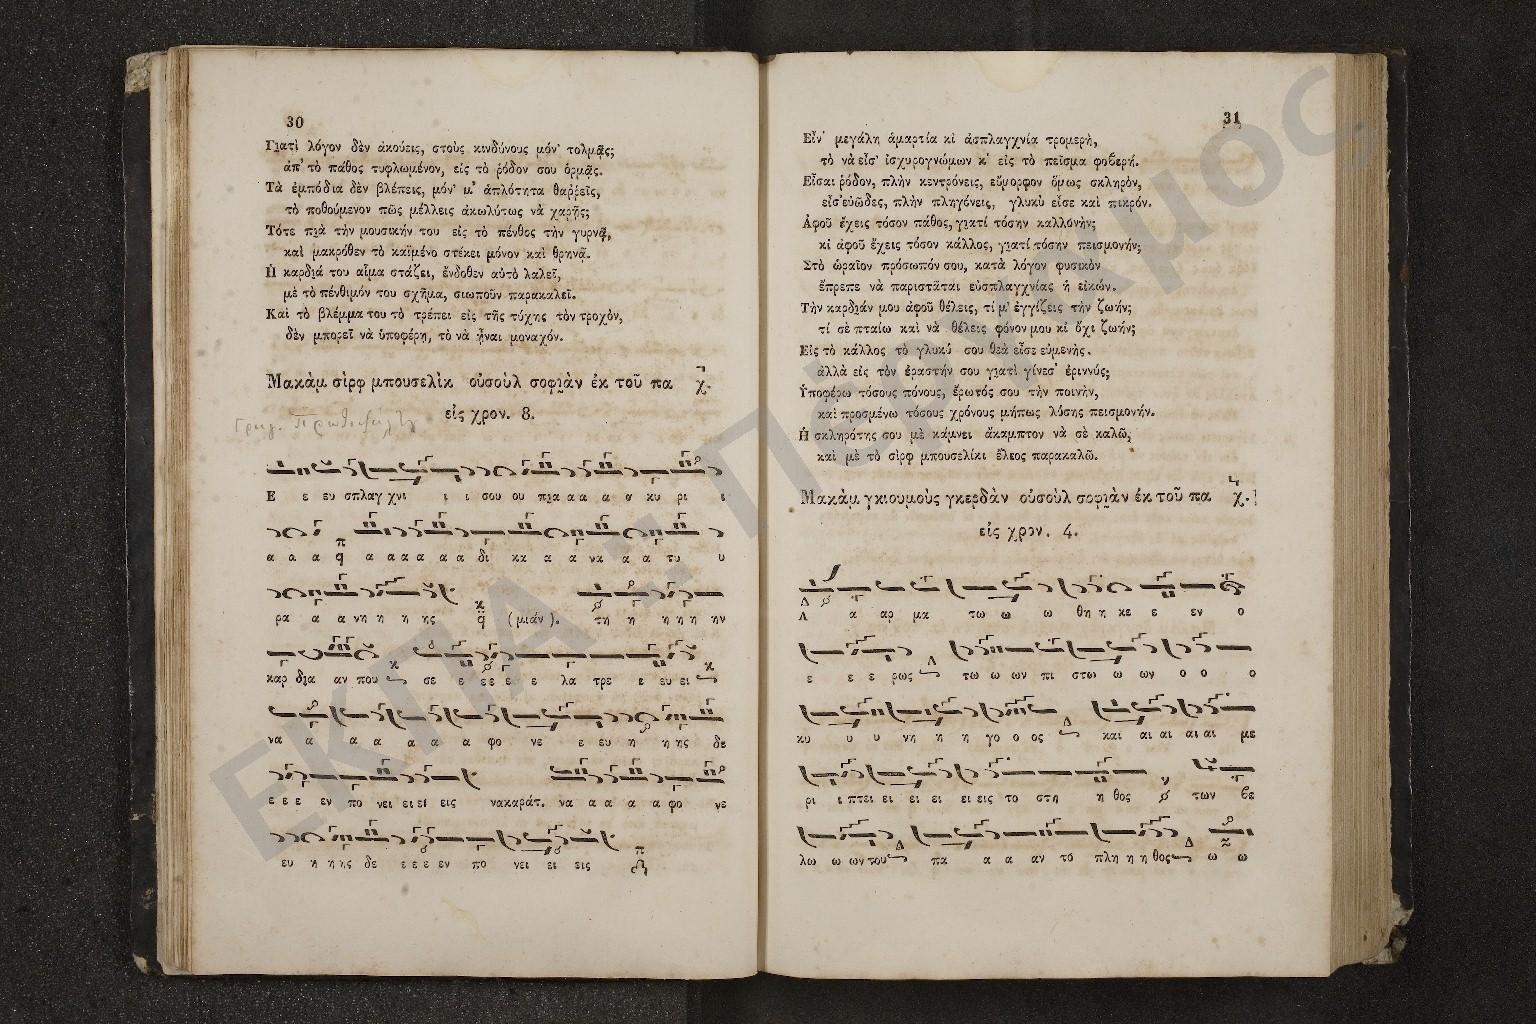 30
Γιατὶ λόγον δὲν ἀκούεις, στοὺς κινδύνους μόν' τολμᾷς;
ἀπ' τὸ πάθος τυφλωμένον, εἰς τὸ ῥόδον σου ὁρμᾷς.
Τὰ ἐμπόδια δὲν βλέπεις, μόν' μ' ἁπλότητα θαῤῥεῖς,
τὸ ποθούμενον πῶς μέλλεις ἀκωλύτως νὰ χαρῇς;
Τότε πιὰ τὴν μουσικήν του εἰς τὸ πένθος τὴν γυρνᾷ,
καὶ μακρόθεν τὸ καϊμένο στέκει μόνον καὶ θρηνᾶ.
Ἡ καρδιά του αἷμα στάζει, ἔνδοθεν αὐτὸ λαλεῖ,
μὲ τὸ πένθιμόν του σχῆμα, σιωποῦν παρακαλεῖ.
Καὶ τὸ βλέμμα του τὸ τρέπει εἰς τῆς τύχης τὸν τροχόν,
δὲν μπορεῖ νὰ ὑποφέρῃ, τὸ νὰ ᾖναι μοναχόν.
Μακὰμ σὶρφ μπουσελὶκ οὐσοὺλ σοφιὰν ἐκ τοῦ πα χ.
εἰς χρον. 8.
Ε ε ευ σπλαγ χνι ι ι σου ου πια α α α α κυ ρι ι
α α α q α α α α α α δι κα α α να α α τυ υ
ρα α α νη η η ης q (μιάν). τη η η η η ην
καρ δια αν που σε ε ε ε ε ε λα τρε ε ευ ει
να α α α α α α φο νε ε ευ η η ης δε
ε ε ε εν πο νει ει εί εις νακαράτ. να α α α α φο νε
ευ η η ης δε ε ε ε εν πο νει ει εις
31
Εἶν' μεγάλη ἁμαρτία κὶ ἀσπλαγχνία τρομερὴ,
τὸ νὰ εἶσ' ἰσχυρογνώμων κ' εἰς τὸ πεῖσμα φοβερή.
Εἶσαι ῥόδον, πλὴν κεντρόνεις, εὔμορφον ὅμως σκληρὸν,
εἶσ' εὐῶδες, πλὴν πληγόνεις, γλυκὺ εἶσε καὶ πικρόν.
Ἀφοῦ ἔχεις τόσον πάθος, γιατί τόσην καλλονὴν;
κὶ ἀφοῦ ἔχεις τόσον κάλλος, γιατί τόσην πεισμονήν;
Στὸ ὡραῖον πρόσωπόν σου, κατὰ λόγον φυσικὸν
ἔπρεπε νὰ παριστᾶται εὐσπλαγχνίας ἡ εἰκών.
Τὴν καρδιάν μου ἀφοῦ θέλεις, τί μ' ἐγγίζεις τὴν ζωήν;
τί σὲ πταίω καὶ νὰ θέλεις φόνον μου κὶ ὄχι ζωήν;
Εἰς τὸ κάλλος τὸ γλυκύ σου θεὰ εἶσε εὐμενὴς,
ἀλλὰ εἰς τὸν ἐραστήν σου γιατὶ γίνεσ' ἐριννύς;
Ὑποφέρω τόσους πόνους, ἔρωτός σου τὴν ποινὴν,
καὶ προσμένω τόσους χρόνους μήπως λύσης πεισμονήν.
Ἡ σκληρότης σου μὲ κάμνει ἄκαμπτον νὰ σὲ καλῶ,
καὶ μὲ τὸ σὶρφ μπουσελίκι ἔλεος παρακαλῶ.
Μακὰμ γκιουμοὺς γκερδὰν οὐσοὺλ σοφιὰν ἐκ τοῦ πα χ.
εἰς χρον. 4.
Λ α αρ μα τω ω ω θη η κε ε εν ο
ε ε ε ρως τω ω ων πι στω ω ων ο ο ο
κυ υ υ νη η η γο ο ος και αι αι αι αι με
ρι ι πτει ει ει ει ει εις το στη η θος των βε
λω ω ων του πα α α αν το πλη η η θος ω ω
ΕΚΠΑ - Πέργαμος